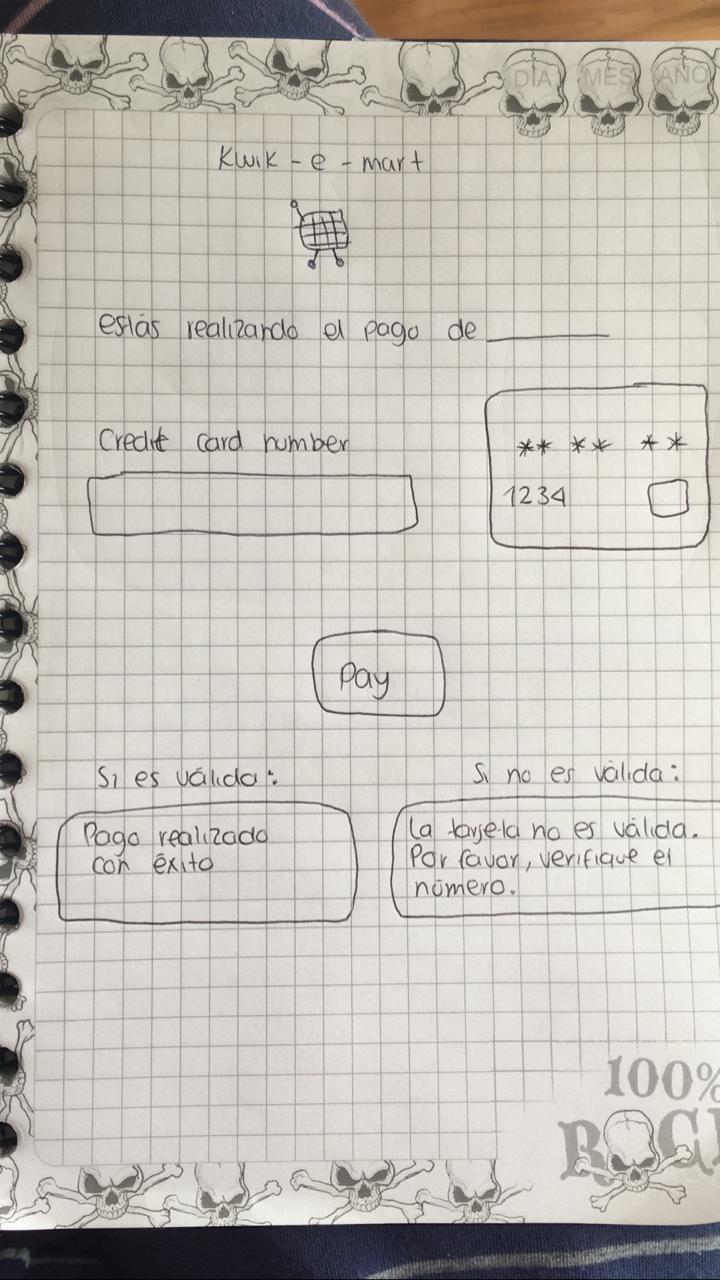 DÍA MES AÑO
Kwik - e - mart
estás realizando el pago de
Credit card number
** ** **
1234
Pay
Si es válida:
Si no es válida:
Pago realizado
con éxito
La tarjeta no es válida.
Por favor, verifique el
número.
100%